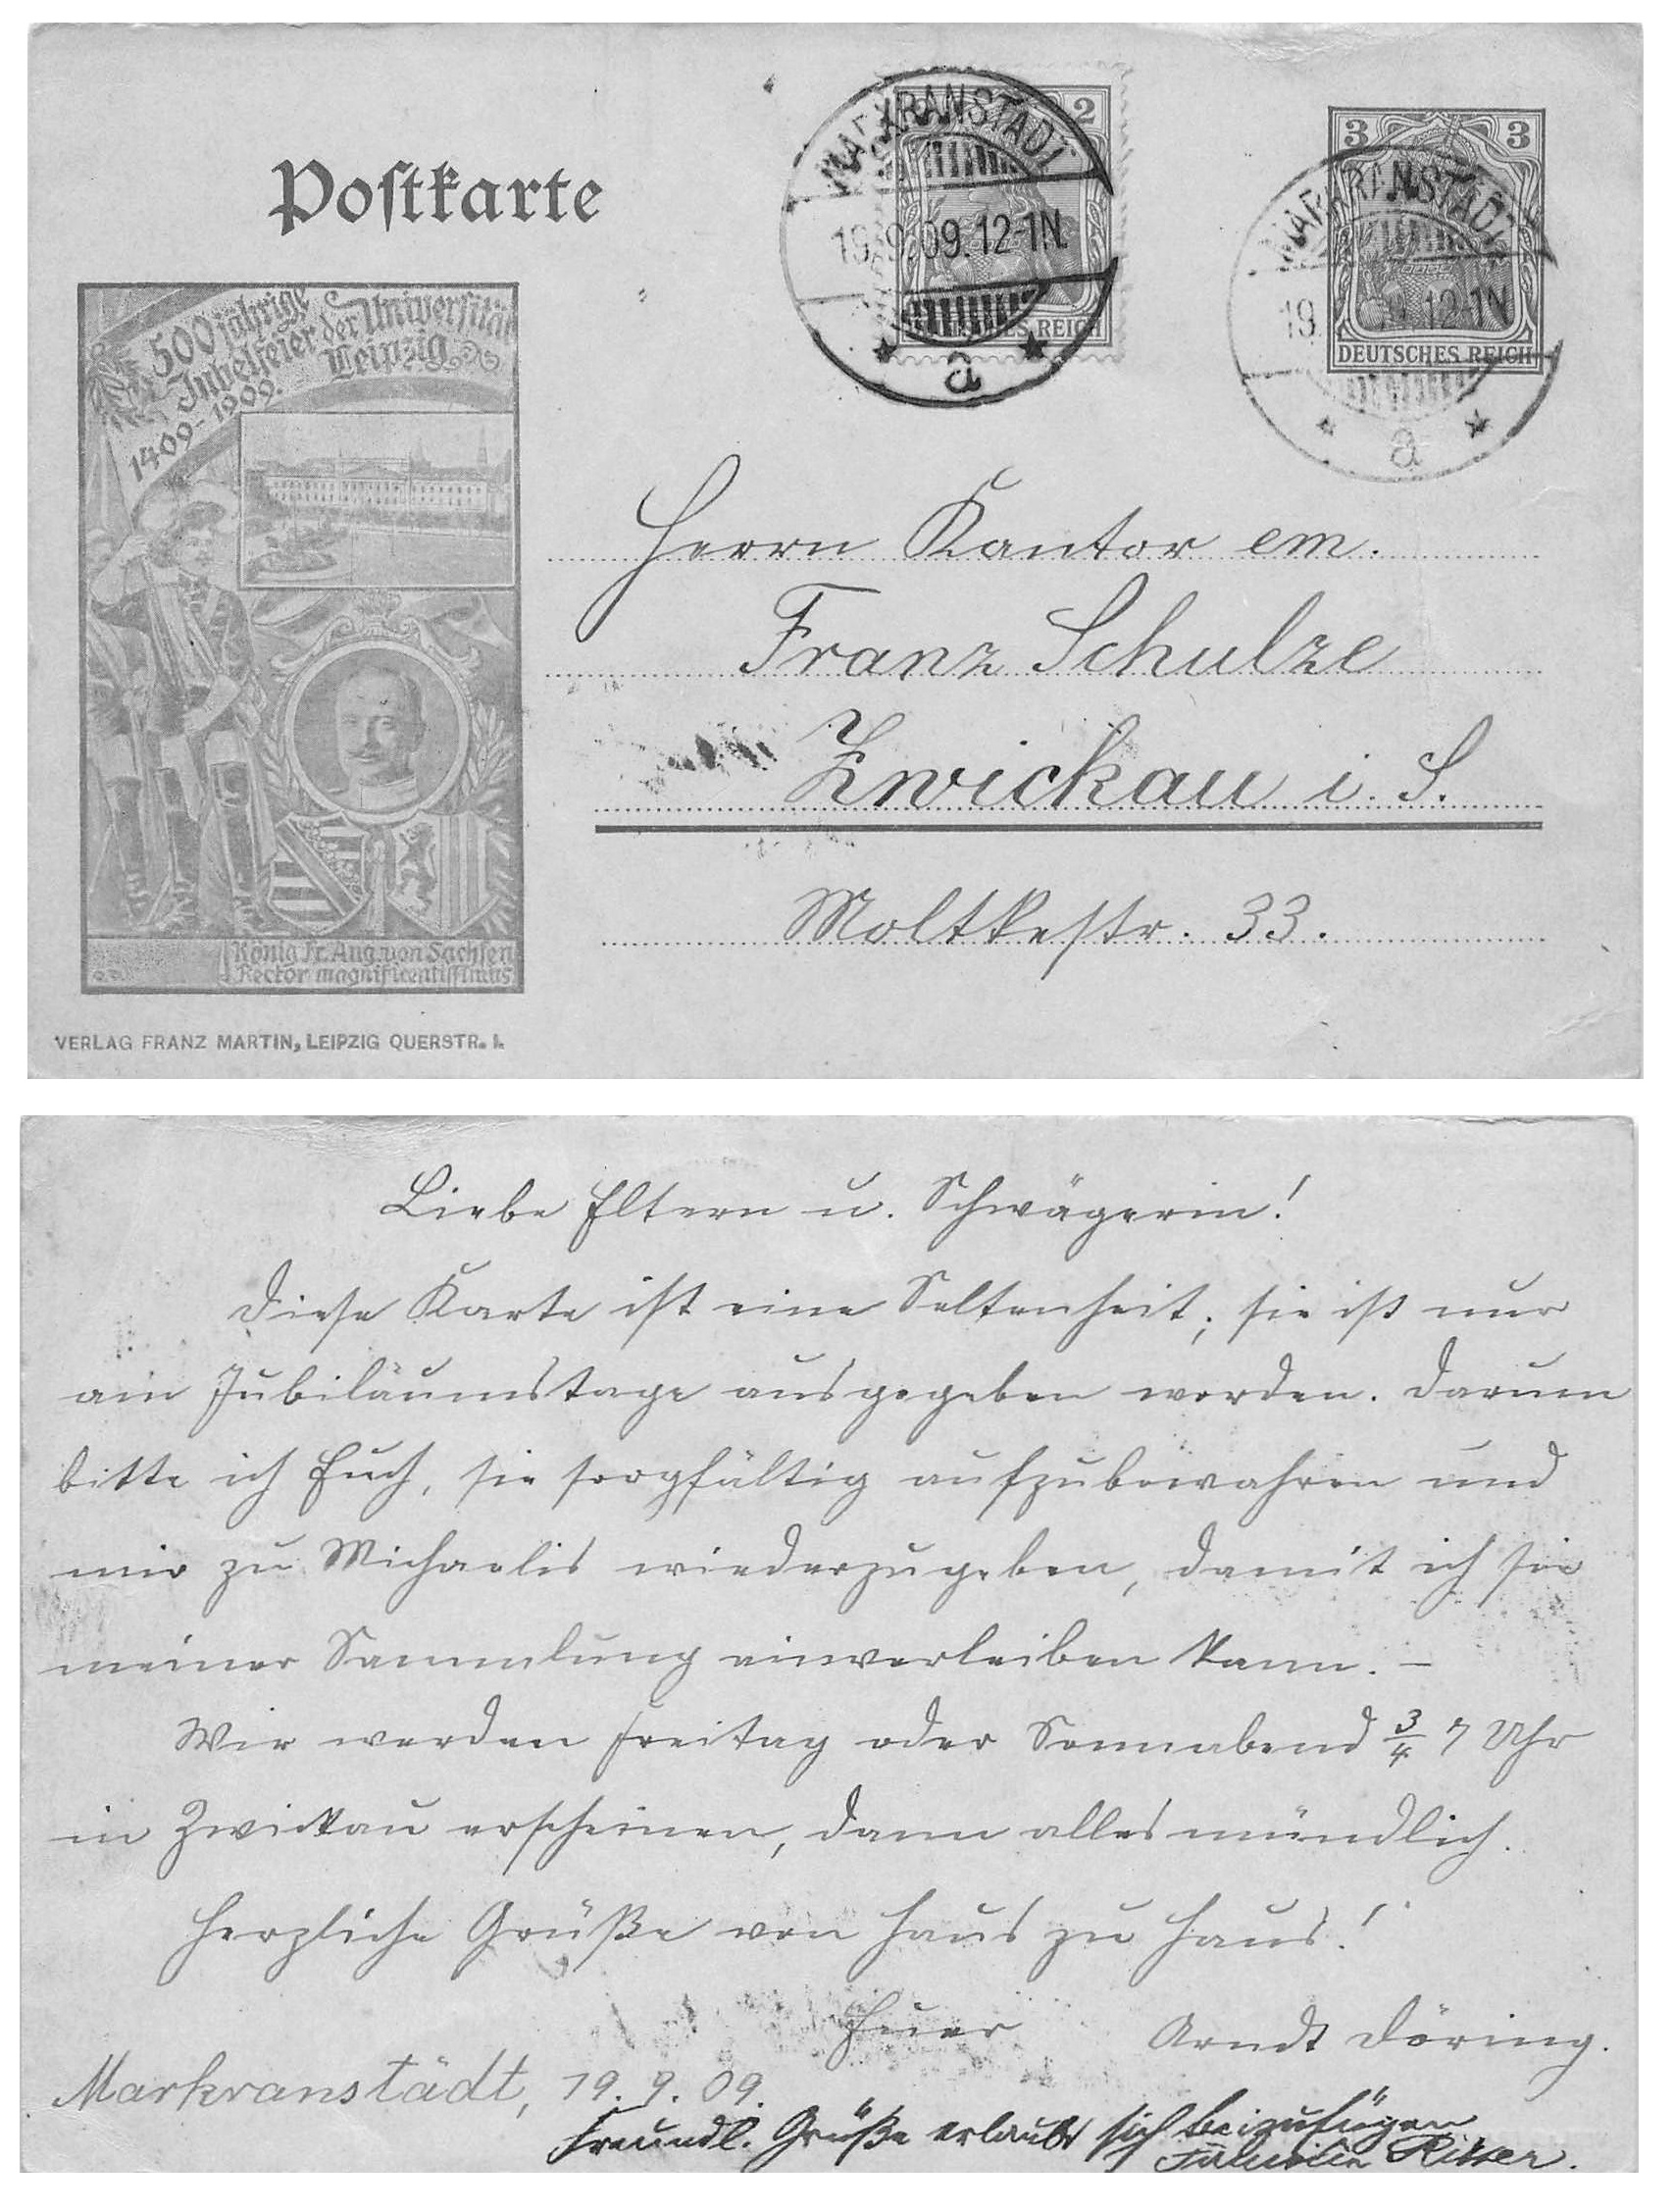 Postkarte
500jährige
Jubelfeier der Universität
Leipzig
1409-1909.
König Fr. Aug. von Sachsen
Rector magnificentissimus
VERLAG FRANZ MARTIN, LEIPZIG QUERSTR. 1.
MARKRANSTÄDT
19.9.09.12-1N.
a
2
DEUTSCHES REICH
MARKRANSTÄDT
19. 12-1N
a
3 3
DEUTSCHES REICH
Herrn Kantor em.
Franz Schulze
Zwickau i. S.
Moltkestr. 33.
Liebe Eltern u. Schwägerin!
Diese Karte ist eine Seltenheit; sie ist nur
am Jubiläumstage ausgegeben worden. Darum
bitte ich Euch, sie sorgfältig aufzubewahren und
mir zu Michaelis wiederzugeben, damit ich sie
meiner Sammlung einverleiben kann. –
Wir werden Freitag oder Sonnabend 3/4 7 Uhr
in Zwickau erscheinen, dann alles mündlich.
Herzliche Grüße von Haus zu Haus!
Euer Arndt Döring.
Markranstädt, 19. 9. 09.
Freundl. Grüße erlaubt sich beizufügen
Familie Ritter.